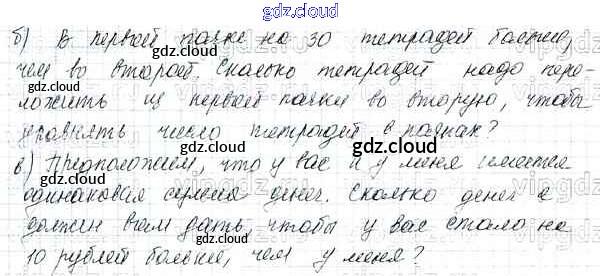 gdz.cloud
б) В первой пачке на 30 тетрадей больше,
чем во второй. Сколько тетрадей надо пере-
ложить из первой пачки во вторую, чтобы
уравнять число тетрадей в пачках?
в) Предположим, что у вас и у меня имеется
одинаковая сумма денег. Сколько денег я
должен вам дать, чтобы у вас стало на
10 рублей больше, чем у меня?